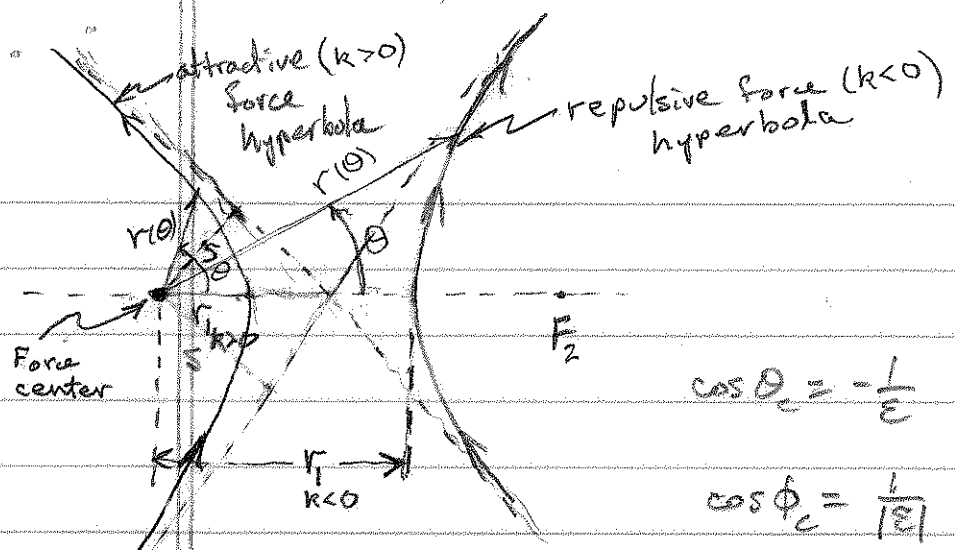 attractive (k>0)
force
hyperbola
repulsive force (k<0)
hyperbola
r(θ)
r(θ)
θ
θ
s
r₁
k>0
s
Force
center
F₂
r₁
k<0
cos θc = -1/ε
cos ϕc = 1/|ε|